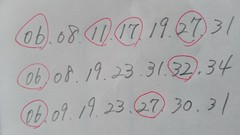 06.08.11.17.19.27.31
06.08.19.23.31.32.34
06.09.19.23.27.30.31